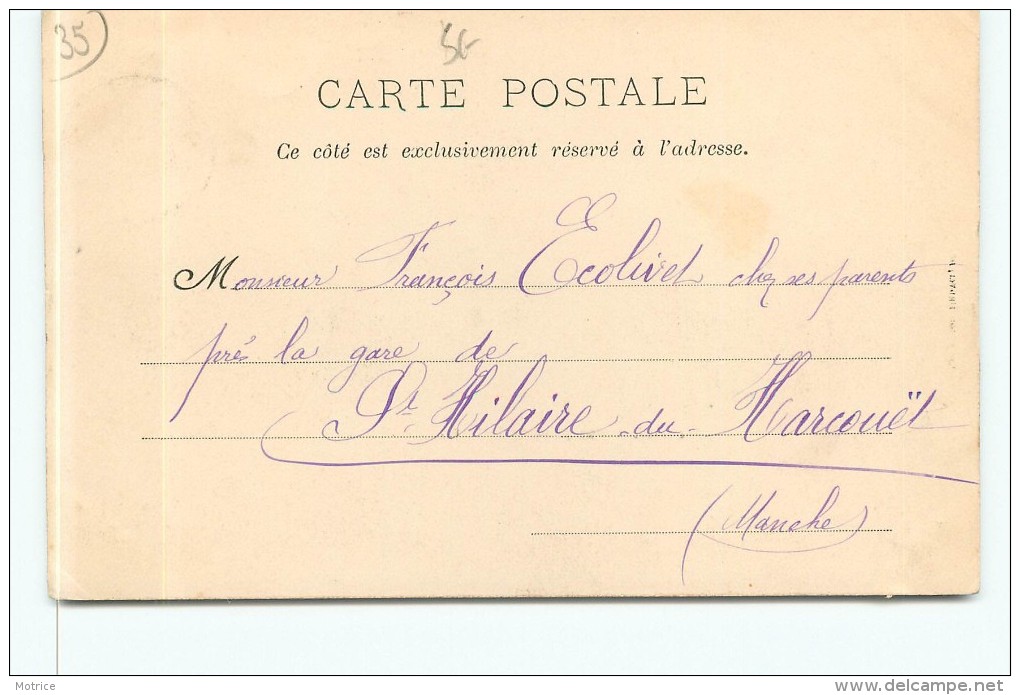 35
CARTE POSTALE
Ce côté est exclusivement réservé à l'adresse.
Monsieur François Ecolivet chez ses parents
près la gare de
St Hilaire-du-Harcouët
(Manche)
Motrice
delcampe.net